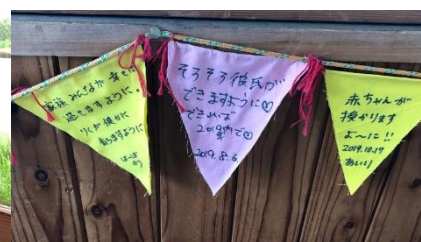 家族みんなが幸せに
過ごせますように。
りくが健康に
育ちますように
そろそろ彼氏が
できますように♡
できれば
2019年内で♡
2019.8.6
赤ちゃんが
授かります
よ〜に!!
2019.10.19
あいり